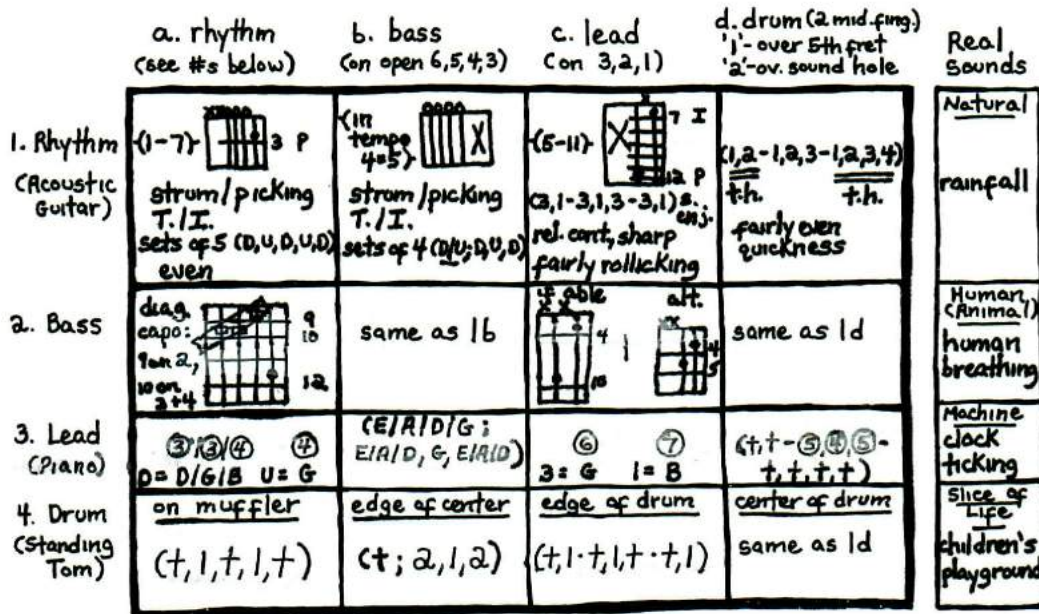 a. rhythm
(see #s below)
b. bass
(on open 6,5,4,3)
c. lead
(on 3,2,1)
d. drum (2 mid. fing.)
'1'- over 5th fret
'2'- ov. sound hole
Real
Sounds
1. Rhythm
(Acoustic
Guitar)
(1-7)
3 P
strum/picking
T./I.
sets of 5 (D,U,D,U,D)
even
(in
tempo
4=5)
X
strom/picking
T./I.
sets of 4 (D/U; D,U,D)
(5-11)
X
7 I
12 P
(3,1-3,1,3-3,1) s.
enj.
rel. cont, sharp
fairly rollicking
(1,2-1,2,3-1,2,3,4)
t.h.
t.h.
fairly even
quickness
Natural
rainfall
2. Bass
diag.
capo:
9 on 2,
10 on
3+4
9
10
12
same as 1b
if able
x x
4
10
alt.
xx
4
5
same as 1d
Human
(Animal)
human
breathing
3. Lead
(Piano)
③/③/④ ④
D= D/G/B U= G
(E/A/D/G;
E/A/D, G, E/A/D)
⑥ ⑦
3= G 1= B
(t,t-⑤,④,⑤-
t,t,t,t)
Machine
clock
ticking
4. Drum
(Standing
Tom)
on muffler
(t,1,t,1,t)
edge of center
(t; 2,1,2)
edge of drum
(t,1·t,1,t·t,1)
center of drum
same as 1d
Slice of
Life
children's
playground